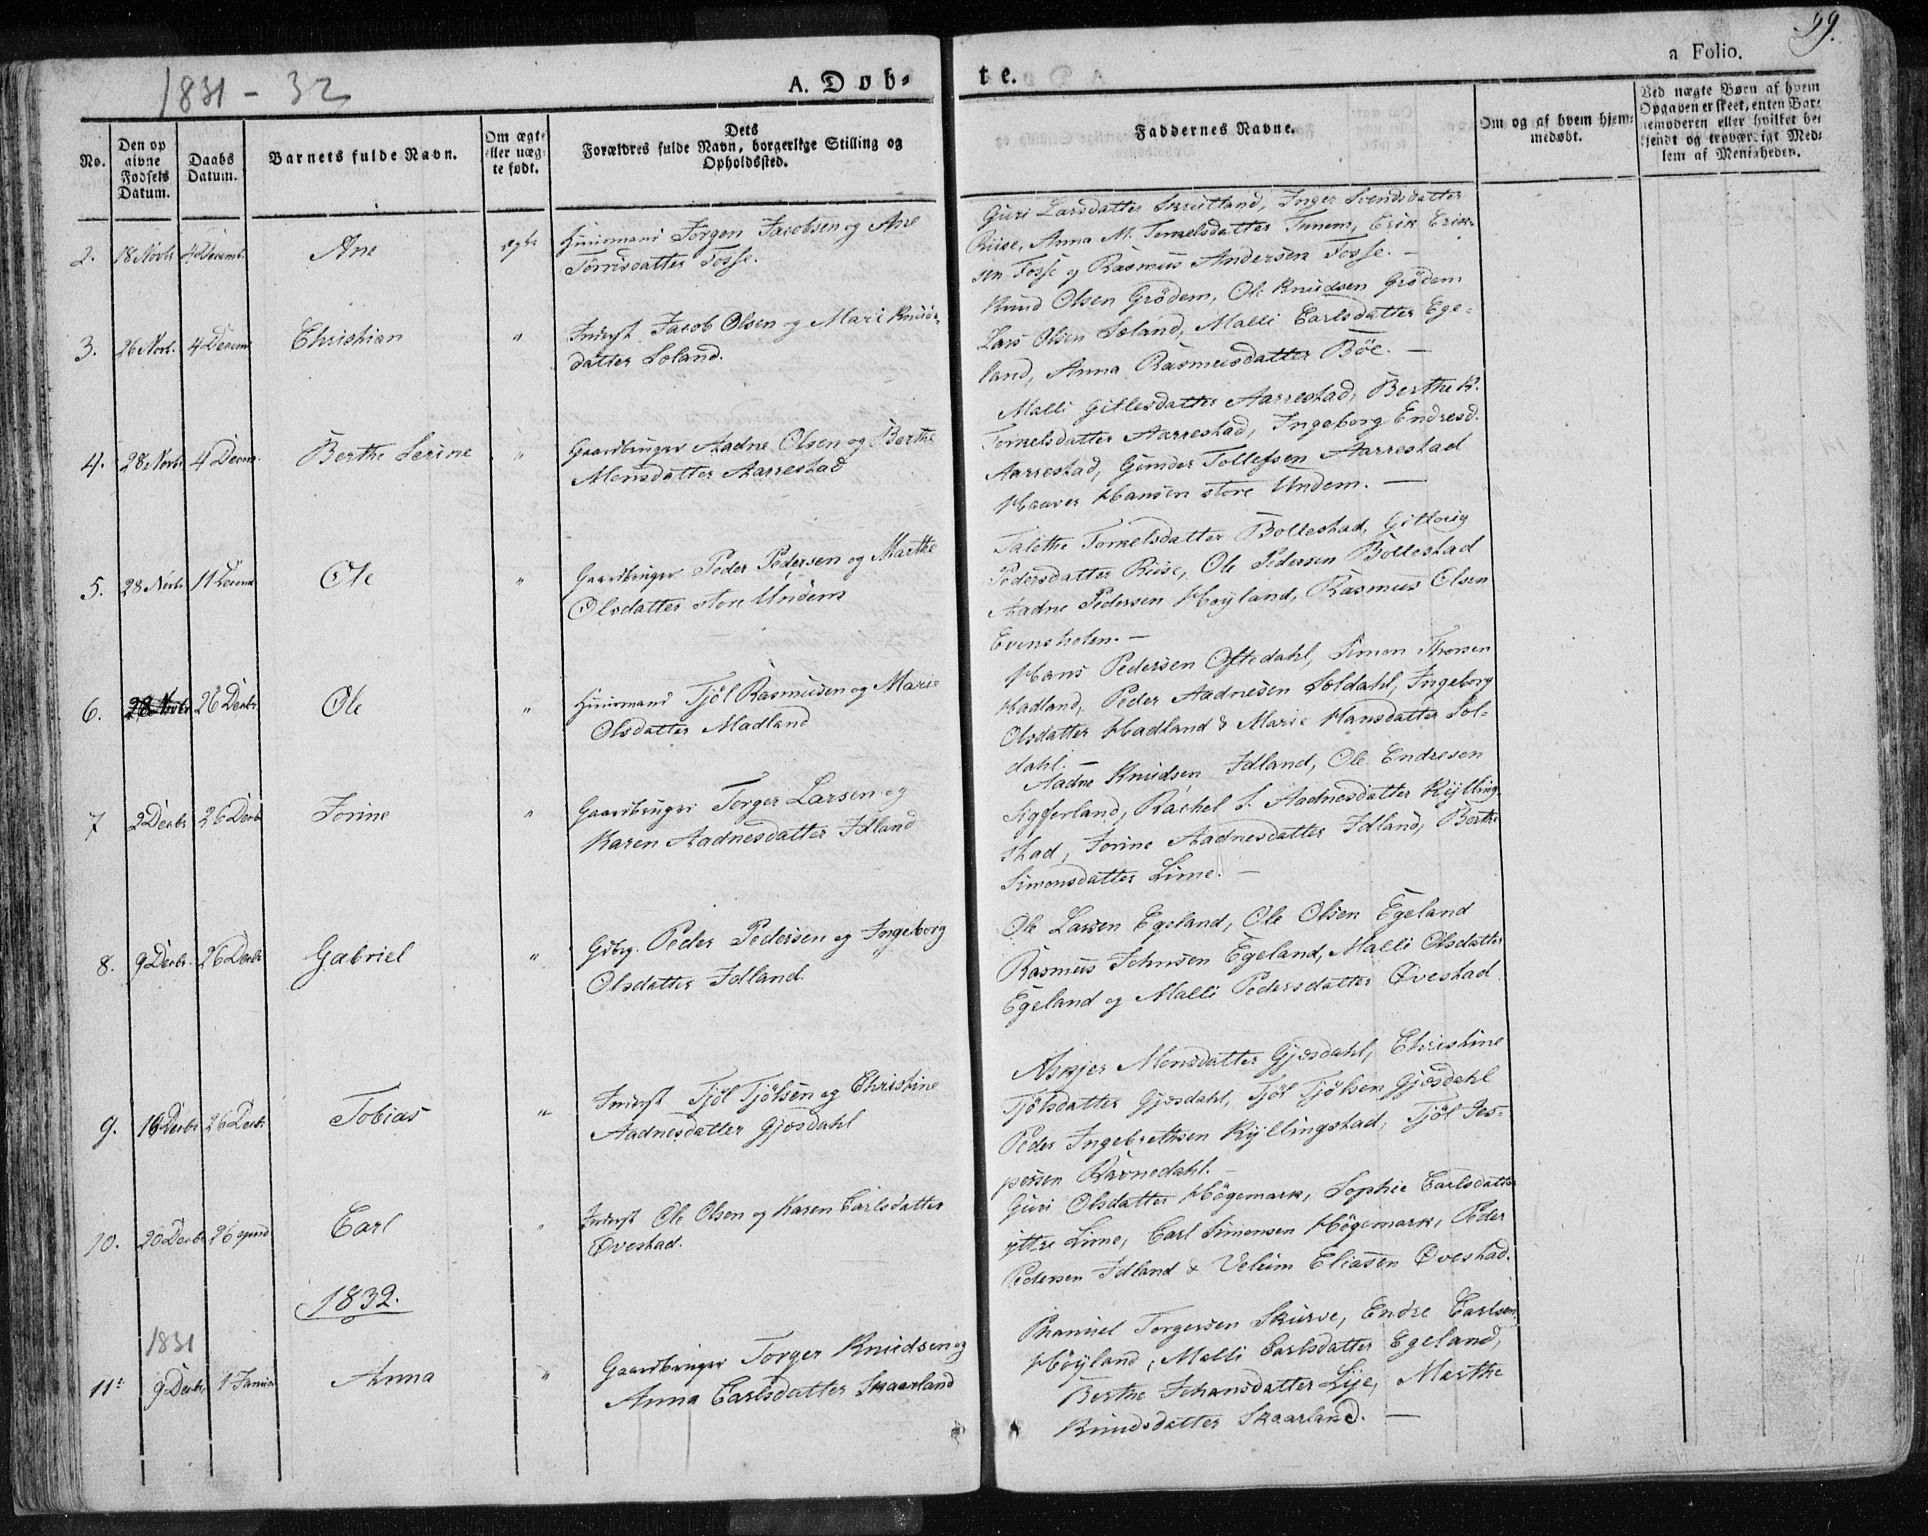 1831 - 32
A. Døb-
te.
a Folio.
99.
No.
Den op
givne
Fødsels
Datum.
Daabs
Datum.
Barnets fulde Navn.
Om ægte
eller uæg-
te født.
Dets
Forældres fulde Navn, borgerlige Stilling og
Opholdssted.
Faddernes Navne.
Om og af hvem hjem-
medøbt.
Ved uægte Børn af hvem
Opgaven er skeet, enten Bar-
nemoderen eller hvilket be-
kjendt og troværdigt Med-
lem af Menigheden.
2. 18 Novbr 4 Decemb. Ane ægte Huusmand Jörgen Jacobsen og Ane
Törrisdatter Fosse.
Guri Larsdatter Skrutland, Inger Svendsdatter
Riise, Anna M. Tonnelsdatter Tunem, Erik Erik-
sen Fosse og Rasmus Andersen Fosse. -
3. 26 Novb. 4 Decemb Christian " Inderst Jacob Olsen og Mari Knuds-
datter Soland.
Knud Olsen Grödem, Ole Knudsen Grödem
Lars Olsen Soland, Malli Carlsdatter Ege-
land, Anna Rasmusdatter Böe. -
4. 28 Novbr 4 Decem. Berthe Serine " Gaardbruger Aadne Olsen og Berthe
Monsdatter Aarrestad
Malli Gitlesdatter Aarrestad, Berthe K.
Torkelsdatter Aarrestad, Ingeborg Endresd.
Aarrestad, Gunder Tollefsen Aarrestad
Haaver Hansen store Undem. -
5. 28 Novbr. 11 Decemb Ole " Gaardbruger Peder Pedersen og Marthe
Olsdatter store Undem
Talethe Torkelsdatter Bollestad, Gitlorig
Pedersdatter Riise, Ole Pedersen Bollestad
Aadne Pedersen Höyland, Rasmus Olsen
Evensholen. -
6. 28 Novbr 26 Decbr Ole " Huusmand Tjöl Rasmusen og Marie
Olsdatter Madland
Hans Pedersen Oftedahl, Simon Thorsen
Hadland, Peder Aadnesen Soldahl, Ingeborg
Olsdatter Hadland & Marie Hansdatter Sol-
dahl. -
7 2 Decbr 26 Decbr Jorine " Gaardbruger Torger Larsen og
Karen Aadnesdatter Idland
Aadne Knudsen Idland, Ole Endresen
Siggerland, Rachel S. Aadnesdatter Kylling-
stad, Jorine Aadnesdatter Idland, Berthe
Simonsdatter Lime. -
8. 9 Decbr. 26 Decbr Gabriel " Gdbrg. Peder Pedersen og Ingeborg
Olsdatter Idland "
Ole Larsen Egeland, Ole Olsen Egeland
Rasmus Johnsen Egeland, Malli Olsdatter
Egeland og Malli Pedersdatter Øvestad
9. 16 Decbr 26 Decbr Tobias " Inderst Tjöl Tjölsen og Christine
Aadnesdatter Gjösdahl
Askjer Monsdatter Gjesdahl, Christine
Tjölsdatter Gjesdahl, Tjöl Tjölsen Gjesdahl
Peder Ingebrethsen Kyllingstad, Tjöl Jes-
persen Ravnedahl. -
10. 20 Decbr 26 ejusd Carl " Inderst Ole Olsen og Karen Carlsdatter
Øvestad.
Guri Olsdatter Högemark, Sophie Carlsdatter
yttre Lime, Carl Simonsen Högemark, Peder
Pedersen Idland & Velum Eliasen Øvestad.
1832.
1831
11: 9 Decbr 1 Januar Anna " Gaardbruger Torger Knudsen og
Anna Carlsdatter Skaarland
Phanuel Torgersen Skurve, Endre Carlsen
Höyland, Malli Carlsdatter Egeland,
Berthe Johansdatter Lye, Marthe
Knudsdatter Skaarland. -